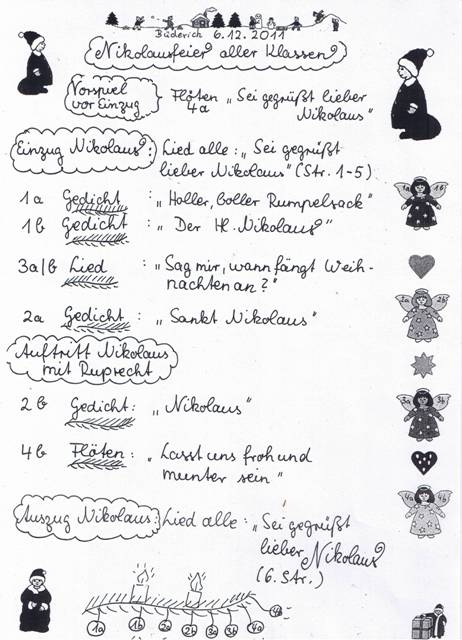 Büderich 6.12.2011
Nikolausfeier aller Klassen
Vorspiel vor Einzug } Flöten 4a „Sei gegrüßt lieber
Nikolaus"
Einzug Nikolaus: Lied alle: „Sei gegrüßt
lieber Nikolaus" (Str. 1-5)
1a Gedicht : „Holler, boller Rumpelsack"
1b Gedicht : „Der Hl. Nikolaus"
3a/b Lied : „Sag mir, wann fängt Weih-
nachten an?"
2a Gedicht : „Sankt Nikolaus"
Auftritt Nikolaus
mit Ruprecht
2b Gedicht: „Nikolaus"
4b Flöten: „Lasst uns froh und
munter sein"
Auszug Nikolaus: Lied alle: „Sei gegrüßt
lieber Nikolaus
(6. Str.)
1a 1b 2a 2b 3a 3b 4a 4b
1a 1b
2a 2b
3a 3b
4a 4b